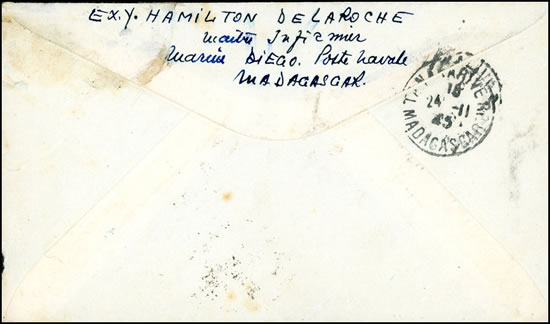 EX.Y. HAMILTON DELAROCHE
Maître Infirmier
Marine DIEGO. Poste Navale
MADAGASCAR.
TANANARIVE R.P.
18
24 -11
45
MADAGASCAR